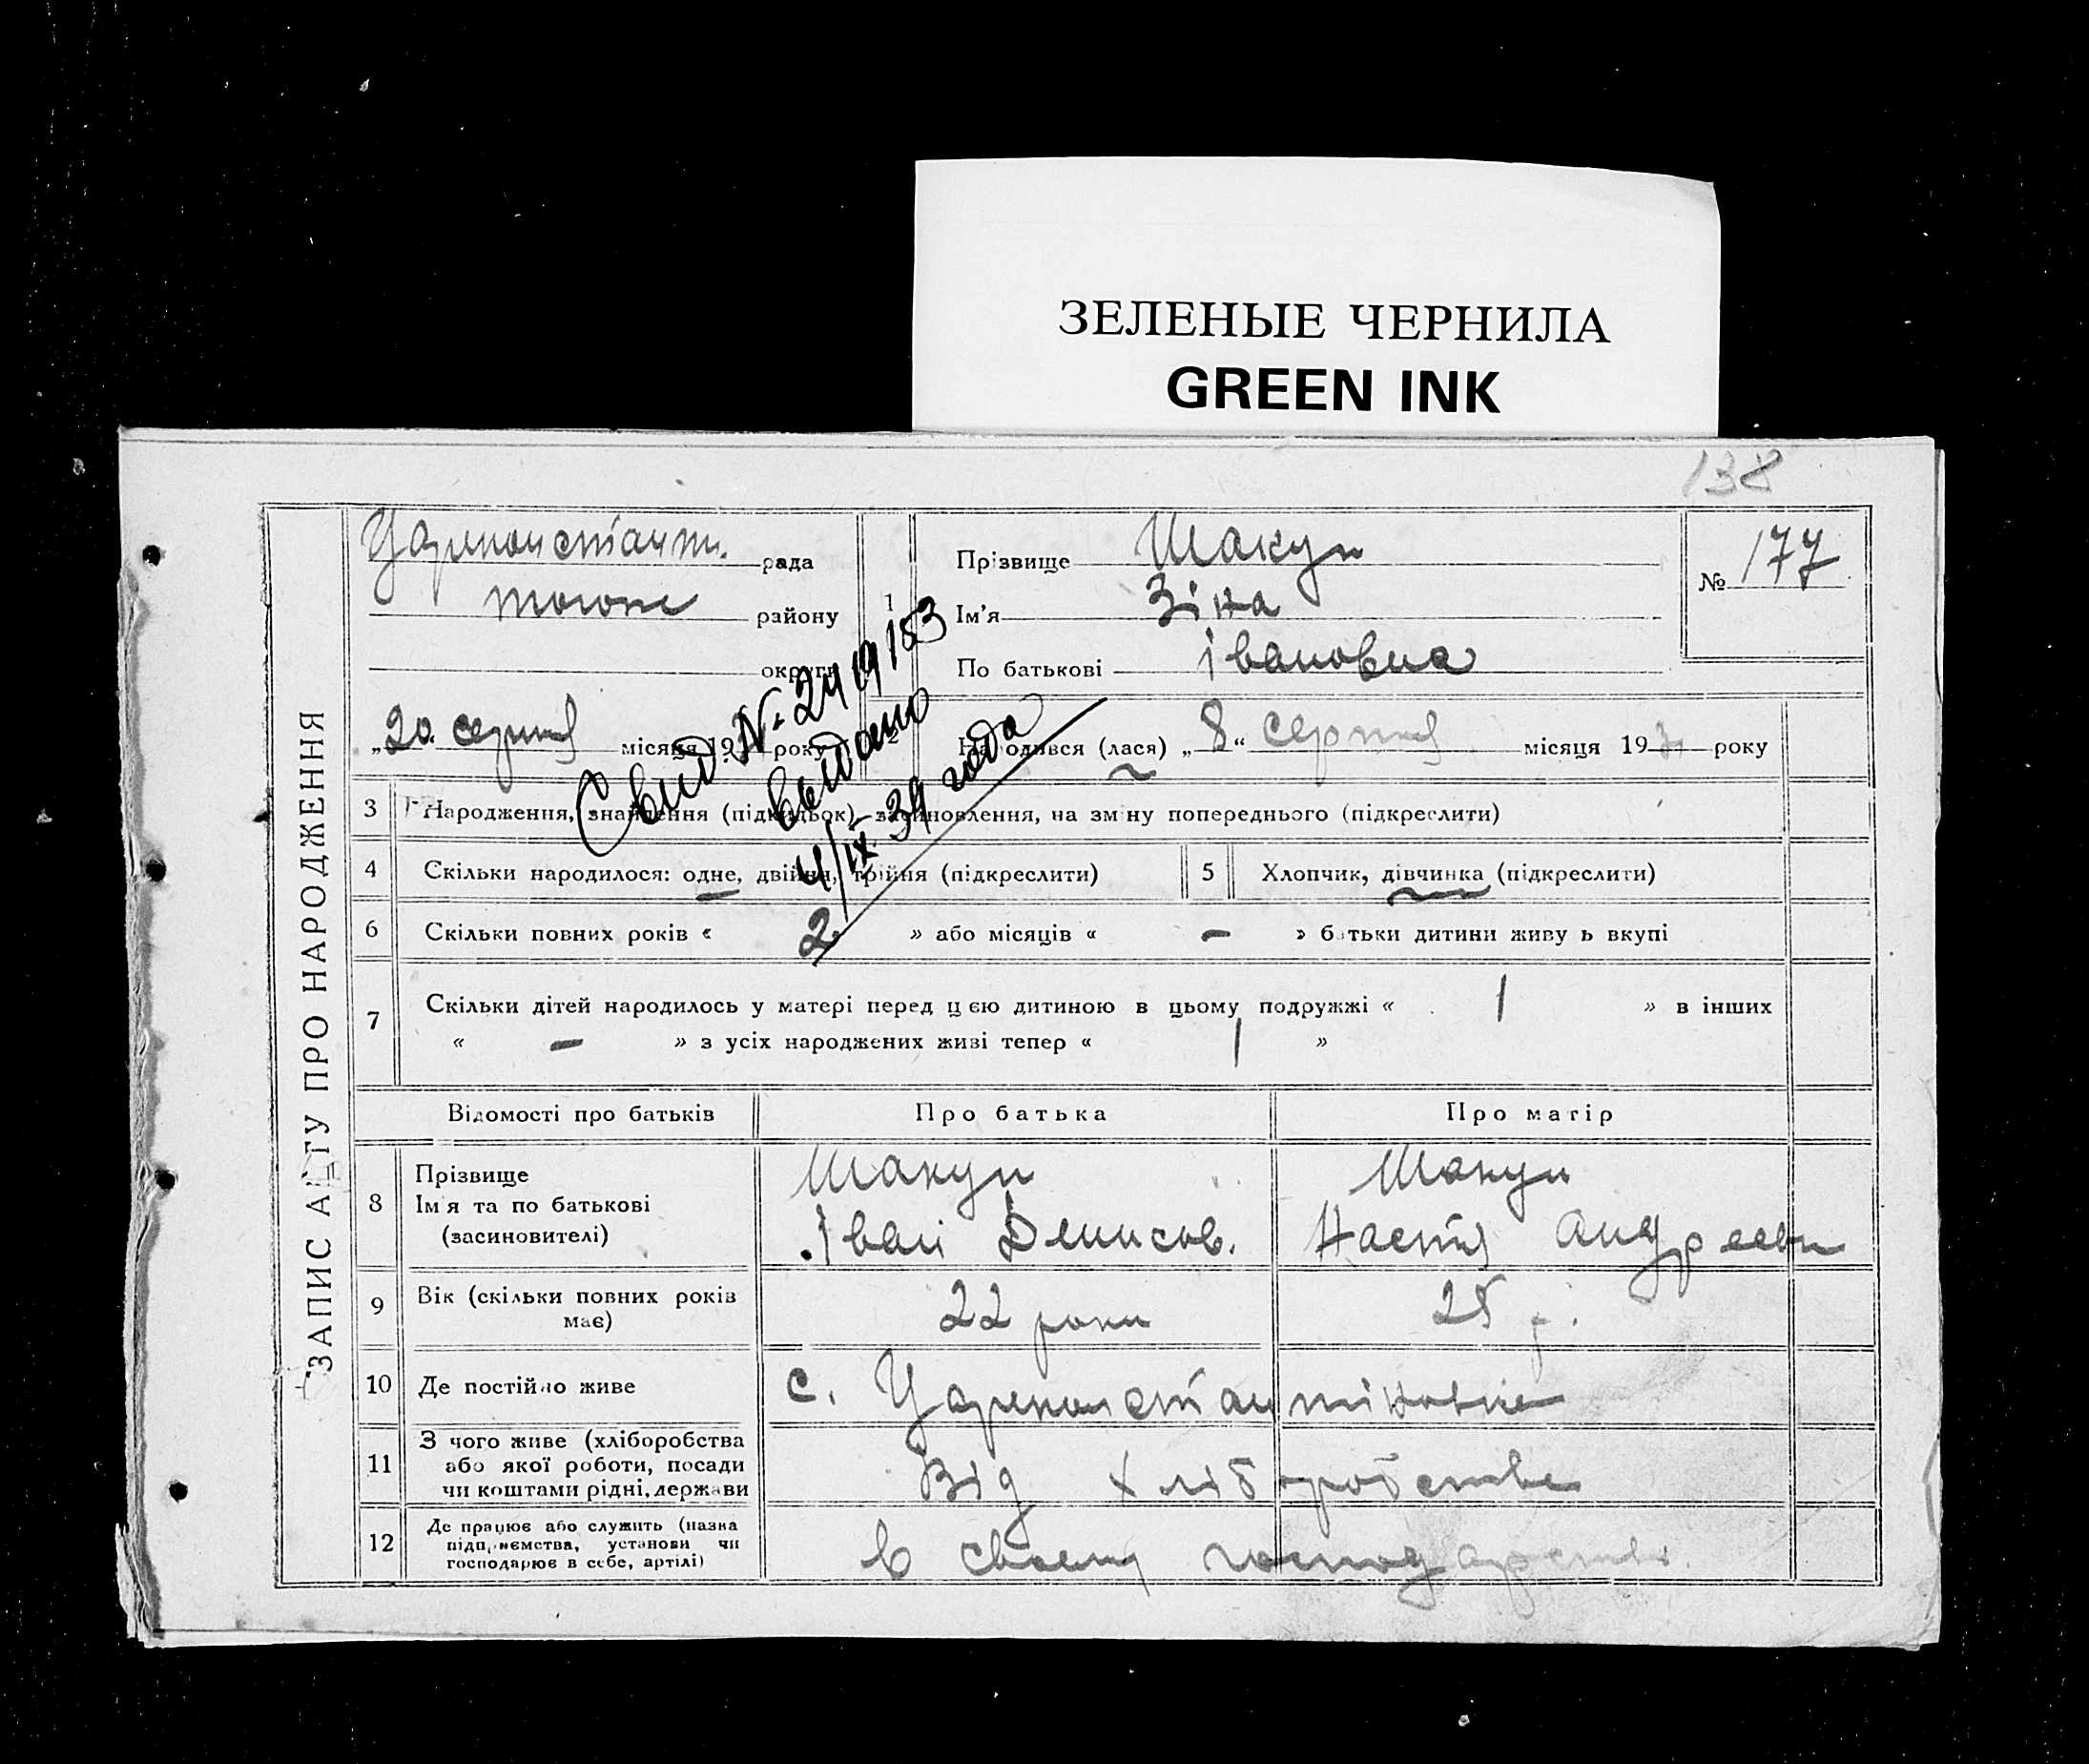 ЗЕЛЕНЫЕ ЧЕРНИЛА
GREEN INK
138
ЗАПИС АКТУ ПРО НАРОДЖЕННЯ
Царекостант. рада
району
округи
„20 серпня місяця 19 року
1
Прізвище Шакун
Ім'я Зіна
По батькові Івановна
№ 177
2
Народився (лася) „8“ серпня місяця 193 року
Свид. № 2419183
выдано
4/IX. 39 года
3 Народження, знайдення (підкидьок), засиновлення, на зміну попереднього (підкреслити)
4 Скільки народилося: одне, двійня, трійня (підкреслити)
5 Хлопчик, дівчинка (підкреслити)
6 Скільки повних років « 2 » або місяців « — » батьки дитини живуть вкупі
7 Скільки дітей народилось у матері перед цією дитиною в цьому подружжі « 1 » в інших
« — » з усіх народжених живі тепер « 1 »
Відомості про батьків Про батька Про матір
8 Прізвище
Ім'я та по батькові
(засиновителі)
Шакун
Іван Денисов.
Шакун
Настя Андреевн
9 Вік (скільки повних років
має)
22 роки
25 р.
10 Де постійно живе
с. Царекостантіновке
11 З чого живе (хліборобства
або якої роботи, посади
чи коштами рідні, держави
Від хліборобства
12 Де працює або служить (назва
підприємства, установи чи
господарює в себе, артілі)
в своему господарстві.